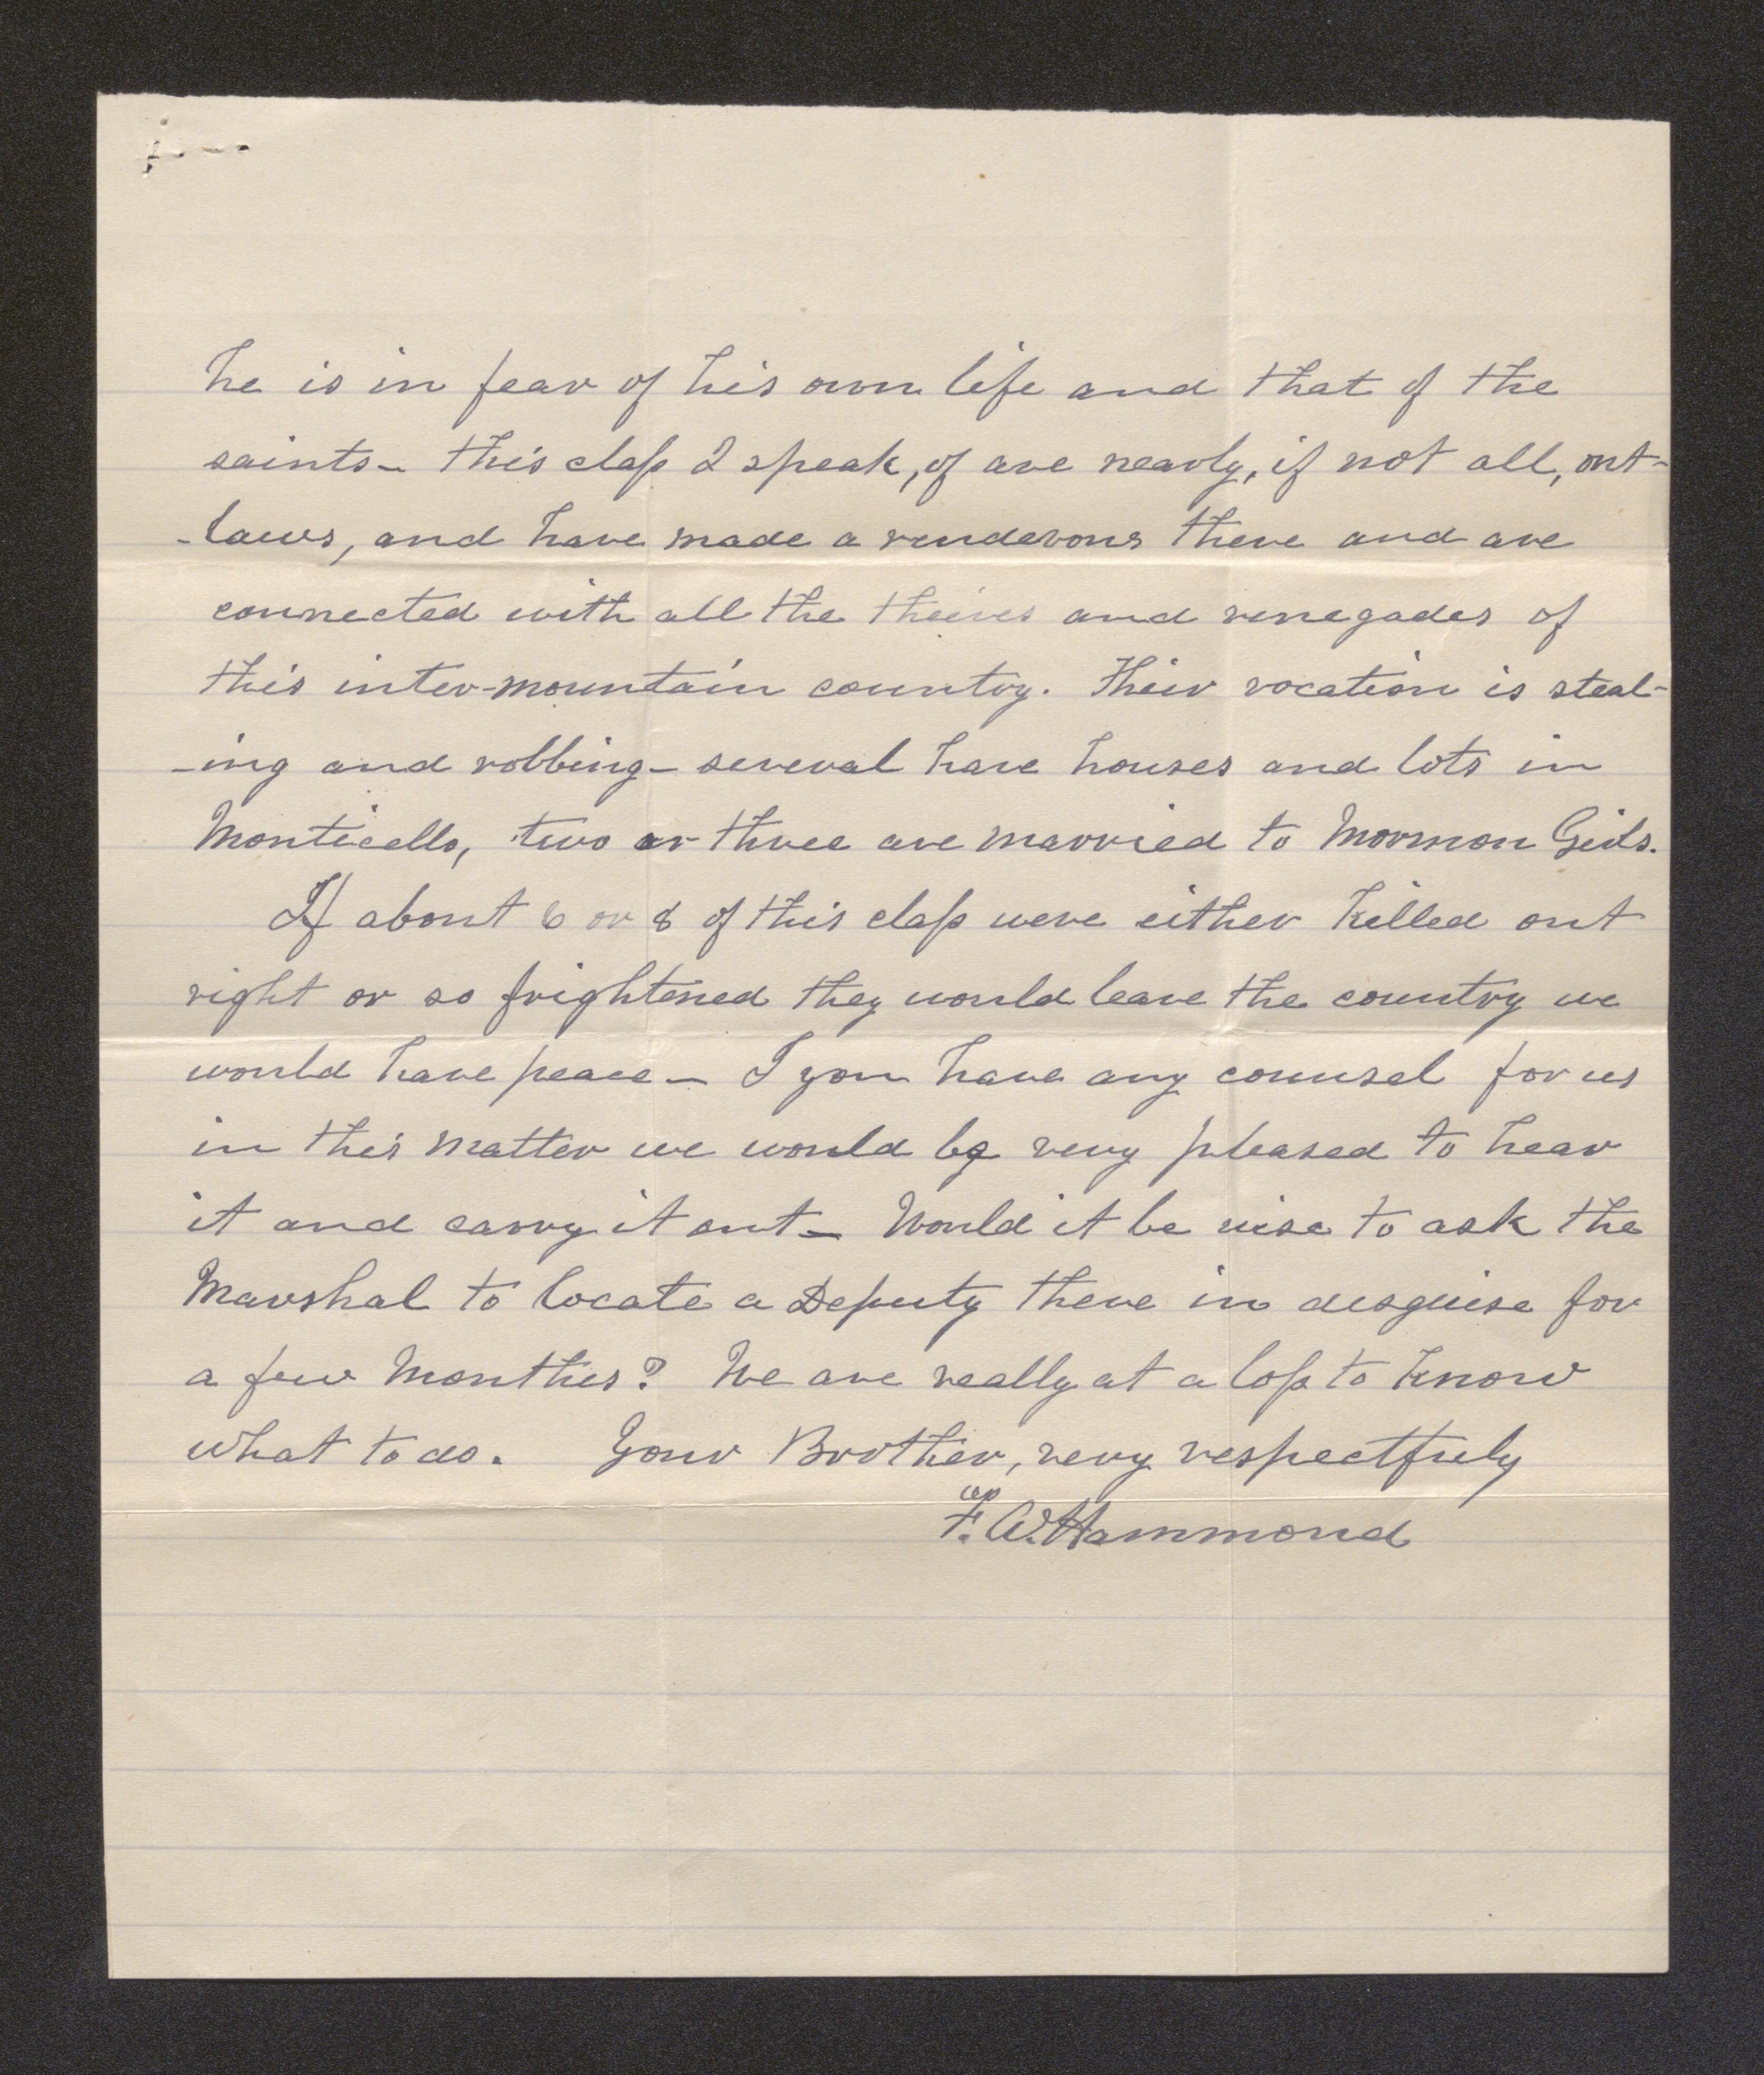 he is in fear of his own life and that of the
saints – this class I speak, of are nearly, if not all, out-
-laws, and have made a rendevous there and are
connected with all the theives and renegades of
this inter-mountain country. Their vocation is steal-
-ing and robbing – several have houses and lots in
Monticello, two or three are married to Mormon Girls.
If about 6 or 8 of this class were either killed out
right or so frightened they would leave the country we
would have peace – I you have any counsel for us
in this matter we would be very pleased to hear
it and carry it out – Would it be wise to ask the
Marshal to locate a Deputy there in disguise for
a few Monthes? We are really at a loss to know
what to do. Your Brother, very respectfuly
F. A. Hammond